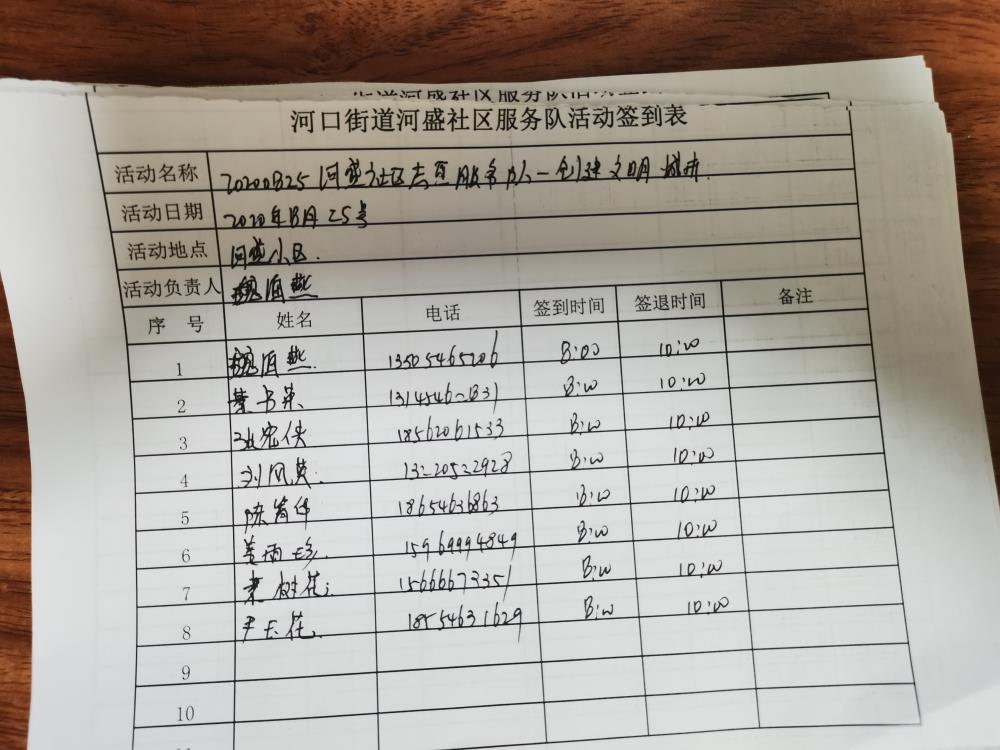 街道河盛社区服务队活动签到表
河口街道河盛社区服务队活动签到表
活动名称 20200825河盛社区志愿服务队一创建文明城市
活动日期 2020年8月25号
活动地点 河盛小区.
活动负责人 燕
序 号 姓名 电话 签到时间 签退时间 备注
1 燕 13505465206 8:00 10:00
2 8:00 10:00
3 18562061533 8:00 10:00
4 刘凤英. 8:00 10:00
5 18654636863 8:00 10:00
6 15969994849 8:00 10:00
7 树花 15666673351 8:00 10:00
8 尹玉花. 18554631629 8:00 10:00
9
10